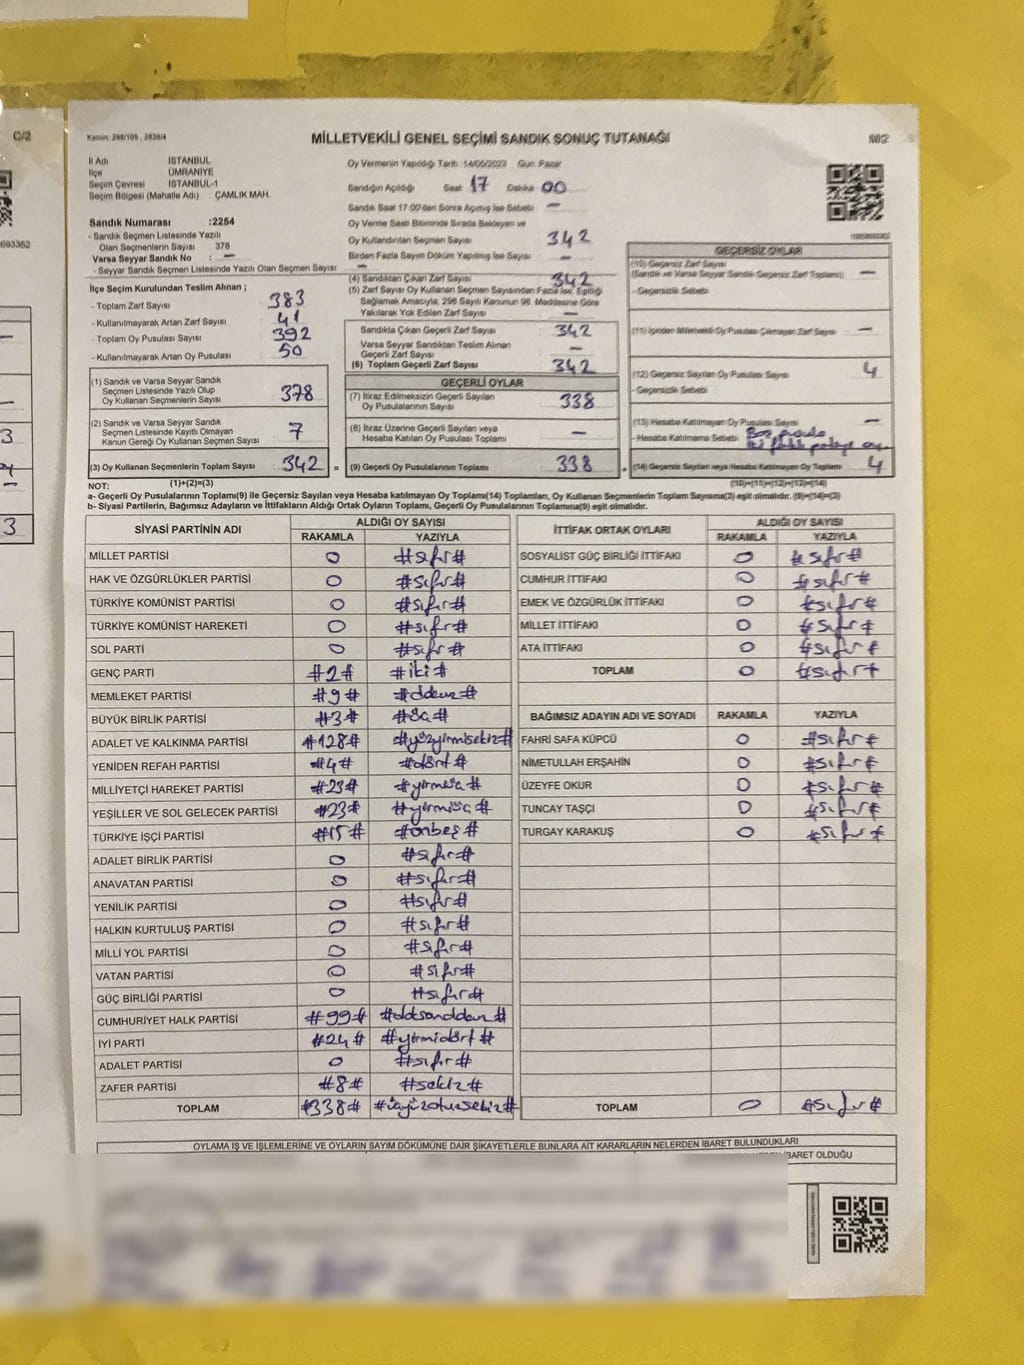 C/2
Kanun: 298/105 , 2839/4
MİLLETVEKİLİ GENEL SEÇİMİ SANDIK SONUÇ TUTANAĞI
M2
İl Adı İSTANBUL
İlçe ÜMRANİYE
Seçim Çevresi İSTANBUL-1
Seçim Bölgesi (Mahalle Adı) ÇAMLIK MAH.
Sandık Numarası :2254
- Sandık Seçmen Listesinde Yazılı
Olan Seçmenlerin Sayısı 376
Varsa Seyyar Sandık No : —
- Seyyar Sandık Seçmen Listesinde Yazılı Olan Seçmen Sayısı : —
İlçe Seçim Kurulundan Teslim Alınan ;
- Toplam Zarf Sayısı 383
- Kullanılmayarak Artan Zarf Sayısı 41
- Toplam Oy Pusulası Sayısı 392
- Kullanılmayarak Artan Oy Pusulası 50
(1) Sandık ve Varsa Seyyar Sandık
Seçmen Listesinde Yazılı Olup
Oy Kullanan Seçmenlerin Sayısı 378
(2) Sandık ve Varsa Seyyar Sandık
Seçmen Listesinde Kayıtlı Olmayan
Kanun Gereği Oy Kullanan Seçmen Sayısı 7
(3) Oy Kullanan Seçmenlerin Toplam Sayısı 342
Oy Vermenin Yapıldığı Tarih 14/05/2023 Gün Pazar
Sandığın Açıldığı Saat 17 Dakika 00
Sandık Saat 17:00'den Sonra Açılmış İse Sebebi —
Oy Verme Saati Bitiminde Sırada Bekleyen ve
Oy Kullandırılan Seçmen Sayısı 342
Birden Fazla Sayım Döküm Yapılmış İse Sayısı —
(4) Sandıktan Çıkan Zarf Sayısı 342
(5) Zarf Sayısı Oy Kullanan Seçmen Sayısından Fazla İse, Eşitliği
Sağlamak Amacıyla, 298 Sayılı Kanunun 98. Maddesine Göre
Yakılarak Yok Edilen Zarf Sayısı —
Sandıkta Çıkan Geçerli Zarf Sayısı 342
Varsa Seyyar Sandıktan Teslim Alınan
Geçerli Zarf Sayısı —
(6) Toplam Geçerli Zarf Sayısı 342
GEÇERLİ OYLAR
(7) İtiraz Edilmeksizin Geçerli Sayılan
Oy Pusulalarının Sayısı 338
(8) İtiraz Üzerine Geçerli Sayılan veya
Hesaba Katılan Oy Pusulası Toplamı —
= (9) Geçerli Oy Pusulalarının Toplamı 338
GEÇERSİZ OYLAR
(10) Geçersiz Zarf Sayısı
(Sandık ve Varsa Seyyar Sandık Geçersiz Zarf Toplamı) —
- Geçersizlik Sebebi
(11) İçinden Milletvekili Oy Pusulası Çıkmayan Zarf Sayısı —
(12) Geçersiz Sayılan Oy Pusulası Sayısı 4
- Geçersizlik Sebebi
(13) Hesaba Katılmayan Oy Pusulası Sayısı —
- Hesaba Katılmama Sebebi Boş pusula
(14) Geçersiz Sayılan veya Hesaba Katılmayan Oy Toplamı 4
NOT: (1)+(2)=(3) (10)+(11)+(12)+(13)=(14)
a- Geçerli Oy Pusulalarının Toplamı(9) ile Geçersiz Sayılan veya Hesaba katılmayan Oy Toplamı(14) Toplamları, Oy Kullanan Seçmenlerin Toplam Sayısına(3) eşit olmalıdır. (9)+(14)=(3)
b- Siyasi Partilerin, Bağımsız Adayların ve İttifakların Aldığı Ortak Oyların Toplamı, Geçerli Oy Pusulalarının Toplamına(9) eşit olmalıdır.
SİYASİ PARTİNİN ADI ALDIĞI OY SAYISI
RAKAMLA YAZIYLA
MİLLET PARTİSİ 0 #sıfır#
HAK VE ÖZGÜRLÜKLER PARTİSİ 0 #sıfır#
TÜRKİYE KOMÜNİST PARTİSİ 0 #sıfır#
TÜRKİYE KOMÜNİST HAREKETİ 0 #sıfır#
SOL PARTİ 0 #sıfır#
GENÇ PARTİ #2# #iki#
MEMLEKET PARTİSİ #9# #dokuz#
BÜYÜK BİRLİK PARTİSİ #3# #üç#
ADALET VE KALKINMA PARTİSİ #128# #yüzyirmisekiz#
YENİDEN REFAH PARTİSİ #4# #dört#
MİLLİYETÇİ HAREKET PARTİSİ #23# #yirmiüç#
YEŞİLLER VE SOL GELECEK PARTİSİ #23# #yirmiüç#
TÜRKİYE İŞÇİ PARTİSİ #15# #onbeş#
ADALET BİRLİK PARTİSİ 0 #sıfır#
ANAVATAN PARTİSİ 0 #sıfır#
YENİLİK PARTİSİ 0 #sıfır#
HALKIN KURTULUŞ PARTİSİ 0 #sıfır#
MİLLİ YOL PARTİSİ 0 #sıfır#
VATAN PARTİSİ 0 #sıfır#
GÜÇ BİRLİĞİ PARTİSİ 0 #sıfır#
CUMHURİYET HALK PARTİSİ #99# #doksandokuz#
İYİ PARTİ #24# #yirmidört#
ADALET PARTİSİ 0 #sıfır#
ZAFER PARTİSİ #8# #sekiz#
TOPLAM #338# #üçyüzotuzsekiz#
İTTİFAK ORTAK OYLARI ALDIĞI OY SAYISI
RAKAMLA YAZIYLA
SOSYALİST GÜÇ BİRLİĞİ İTTİFAKI 0 #sıfır#
CUMHUR İTTİFAKI 0 #sıfır#
EMEK VE ÖZGÜRLÜK İTTİFAKI 0 #sıfır#
MİLLET İTTİFAKI 0 #sıfır#
ATA İTTİFAKI 0 #sıfır#
TOPLAM 0 #sıfır#
BAĞIMSIZ ADAYIN ADI VE SOYADI RAKAMLA YAZIYLA
FAHRİ SAFA KÜPCÜ 0 #sıfır#
NİMETULLAH ERŞAHİN 0 #sıfır#
ÜZEYFE OKUR 0 #sıfır#
TUNCAY TAŞÇI 0 #sıfır#
TURGAY KARAKUŞ 0 #sıfır#
TOPLAM 0 #sıfır#
OYLAMA İŞ VE İŞLEMLERİNE VE OYLARIN SAYIM DÖKÜMÜNE DAİR ŞİKAYETLERLE BUNLARA AİT KARARLARIN NELERDEN İBARET BULUNDUKLARI
İBARET OLDUĞU